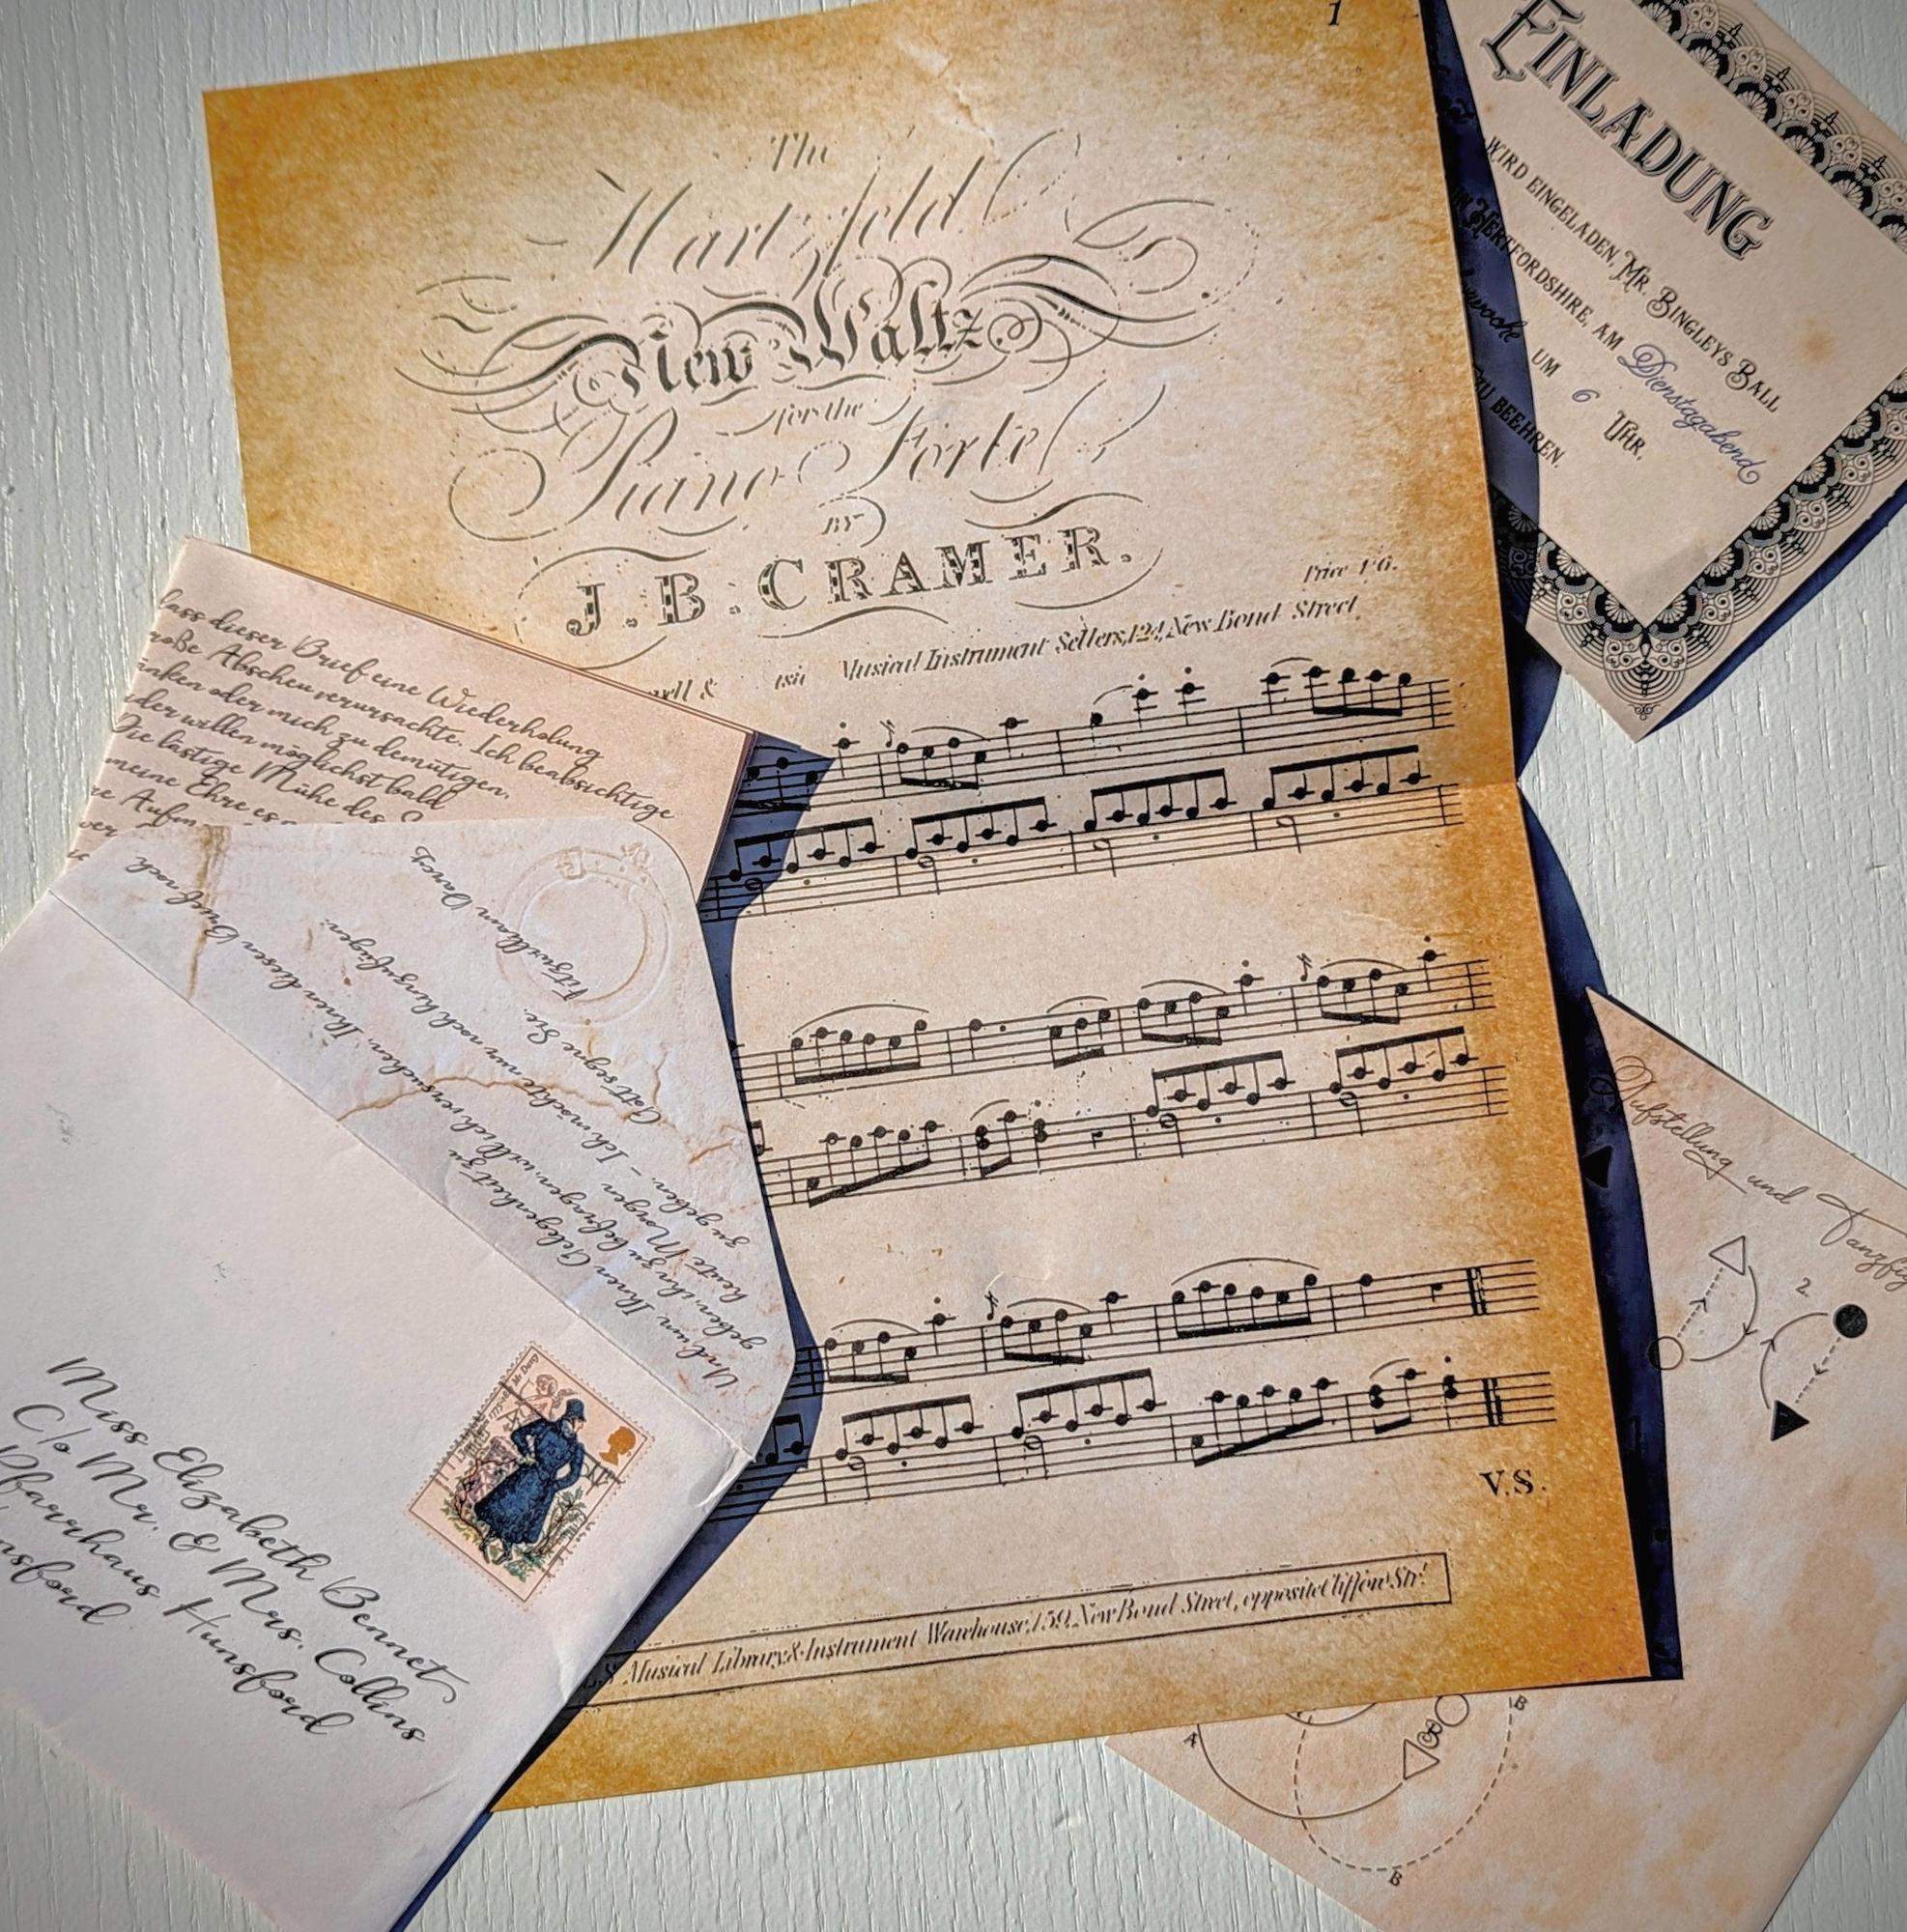 1
The
New Waltz
for the
Piano Forte
BY
J.B. CRAMER.
Price 1/6.
Musical Instrument Sellers, 124, New Bond Street
V.S.
Musical Library & Instrument Warehouse, 139, New Bond Street, opposite Clifford Str!
EINLADUNG
WIRD EINGELADEN, MR. BINGLEYS BALL
IN HERTFORDSHIRE, AM Dienstagabend
UM 6 UHR,
ZU BEEHREN.
dieser Brief eine Wiederholung
Abscheu verursachte. Ich beabsichtige
oder mich zu demütigen,
willen möglichst bald
Die lästige Mühe des
meine Ehre es
Und um Ihnen Gelegenheit zu
geben, ihn zu befragen, will ich versuchen, Ihnen diesen Brief noch
heute Morgen zu geben. – Ich möchte nur noch hinzufügen:
Gott segne Sie.
Fitzwilliam Darcy
Mr Darcy
Miss Elizabeth Bennet
C/o Mr. & Mrs. Collins
Pfarrhaus Hunsford
Aufstellung und
2
A
B
B